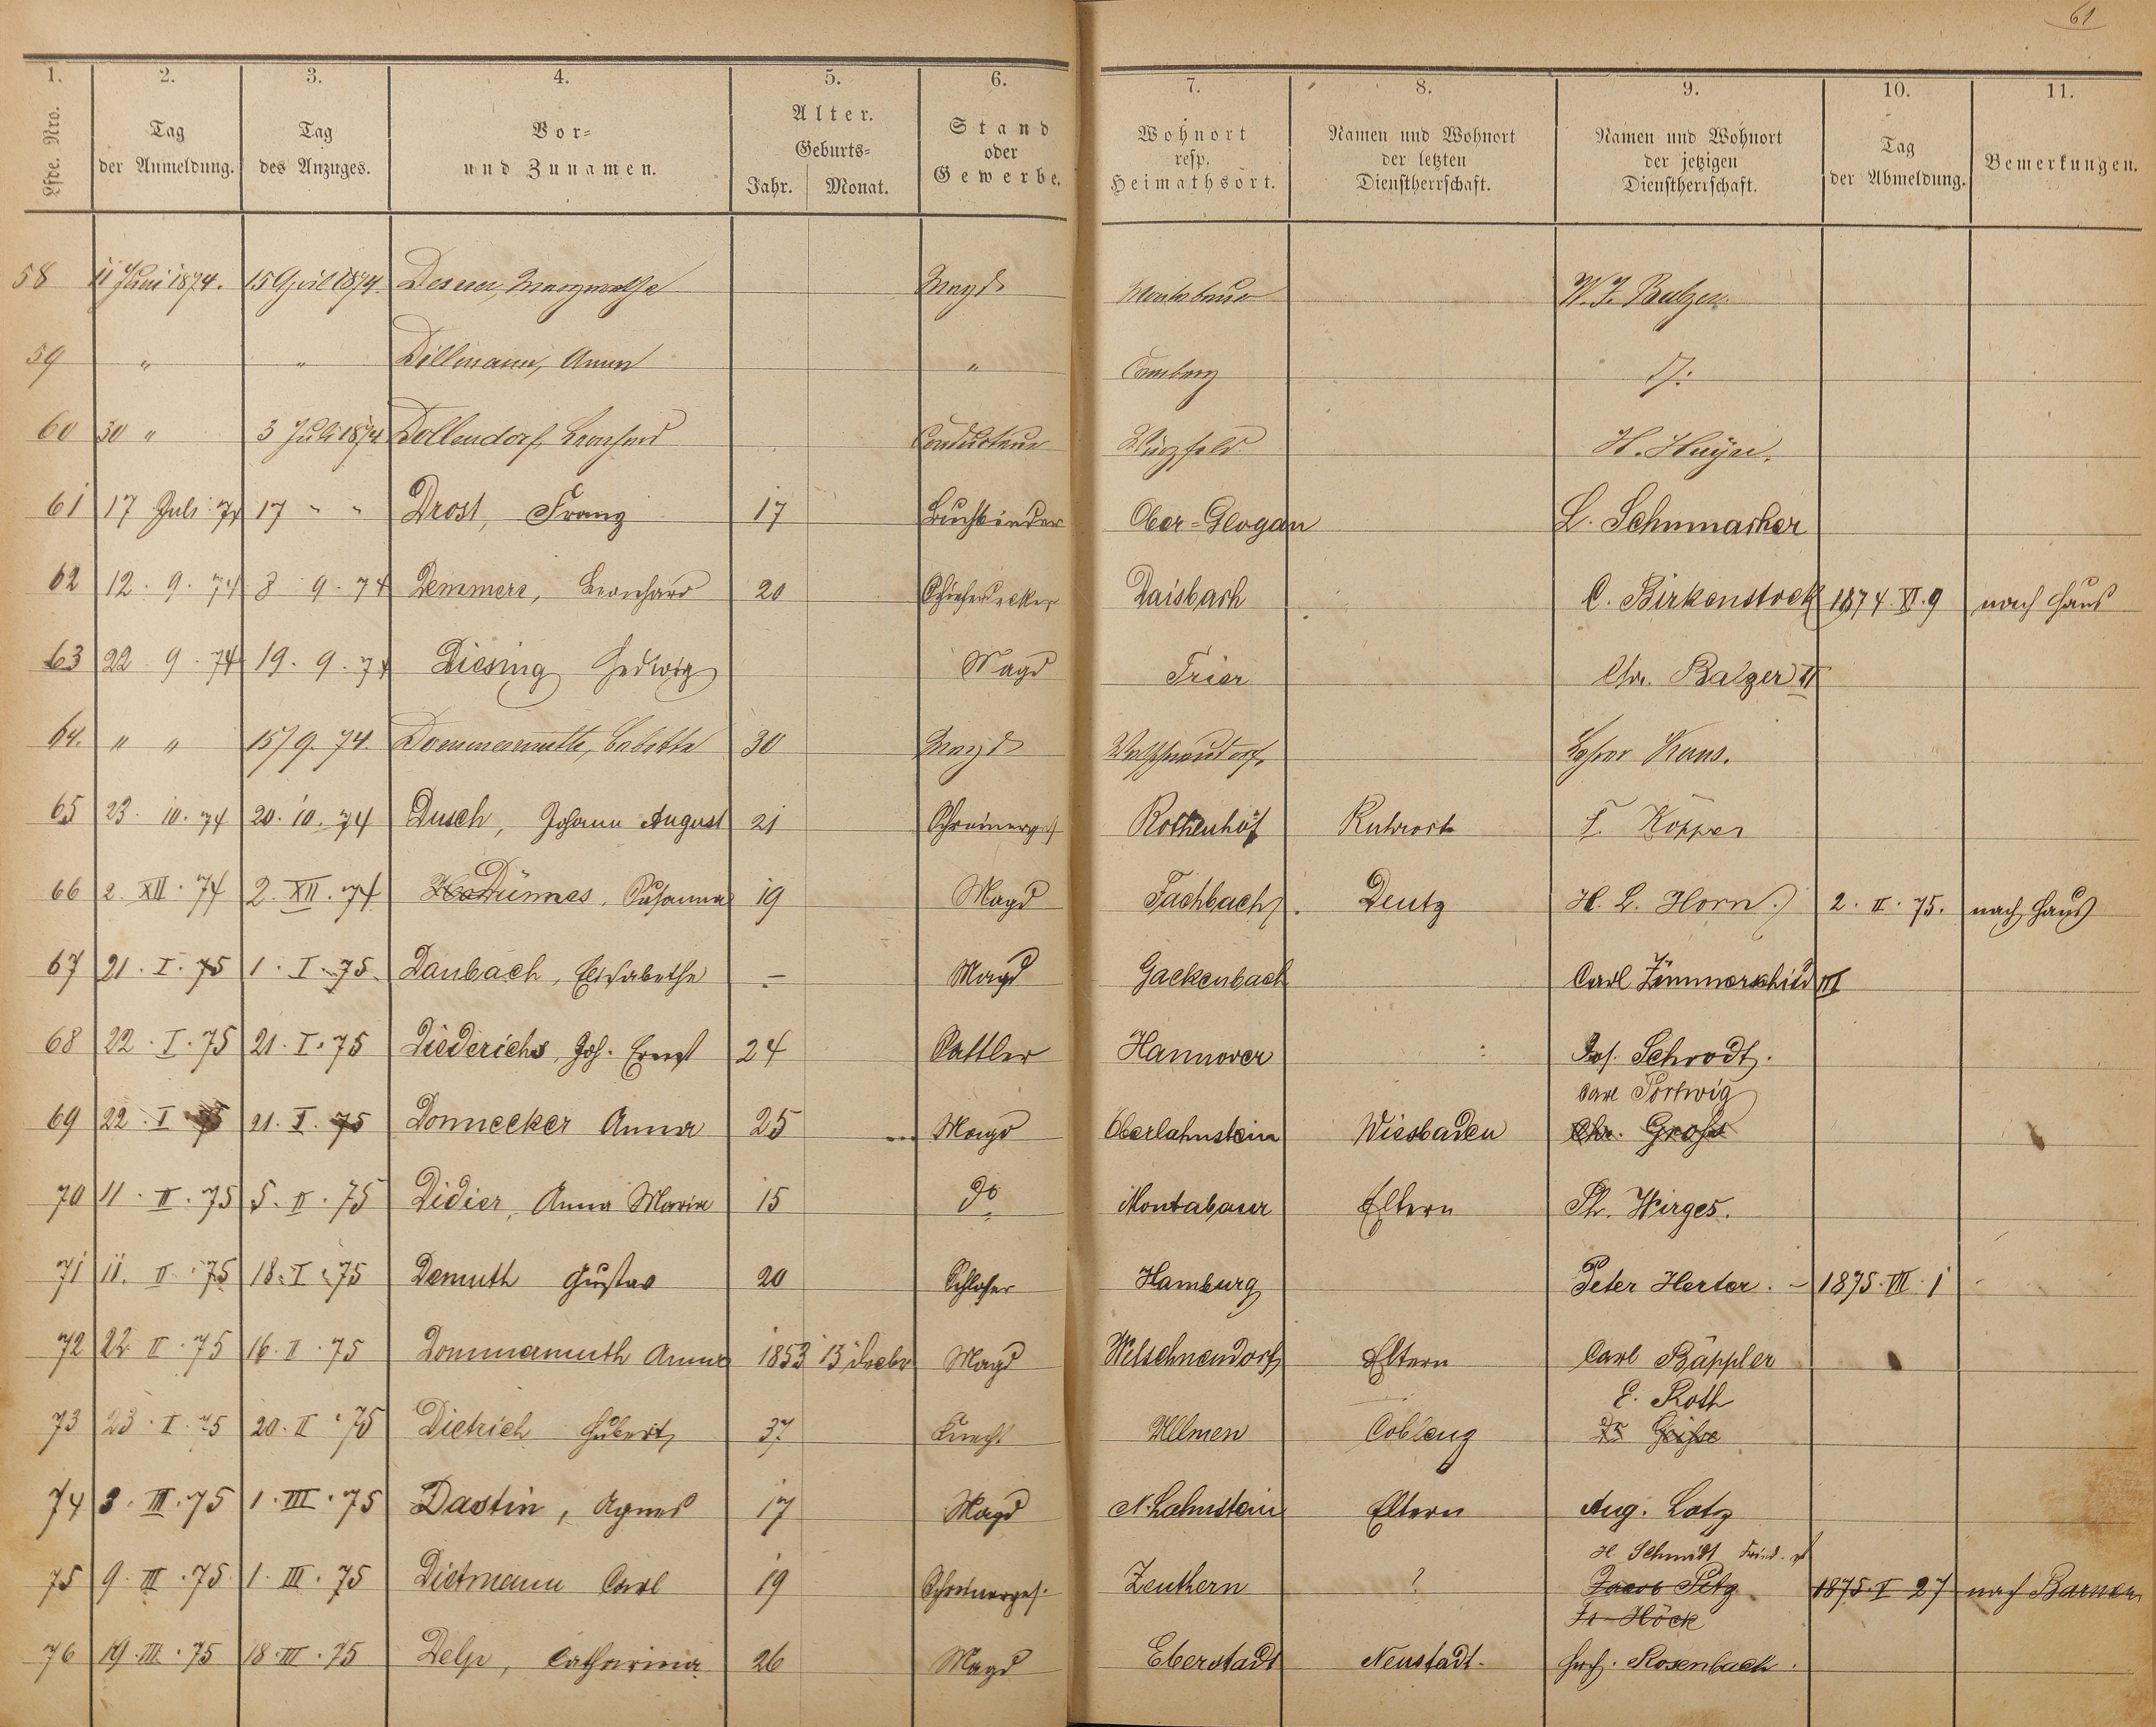 61
1. 2. 3. 4. 5. 6. 7. 8. 9. 10. 11.
Lfde. Nro. | Tag der Anmeldung. | Tag des Anzuges. | Vor- und Zunamen. | Alter. Geburts- Jahr. Monat. | Stand oder Gewerbe. | Wohnort resp. Heimathsort. | Namen und Wohnort der letzten Dienstherrschaft. | Namen und Wohnort der jetzigen Dienstherrschaft. | Tag der Abmeldung. | Bemerkungen.
58 11 Juni 1874. 15 April 1874. Margarethe Magd Montabaur W. J. Balzer.
59 " " Dillmann, Anna " Camberg
60 30 " 3 Juli 1874 Dollendorf, Leonhard Conducteur H.
61 17 Juli 74 17 " " Drost, Franz 17 Buchbinder Ober-Glogau L. Schumacher
62 12. 9. 74 8 9. 74 Demmers, Leonhard 20 Schieferdecker Daisbach C. Birkenstock 1874. XI. 9 nach Haus
63 22. 9. 74 19. 9. 74 Diesing Hedwig Magd Trier Chr. Balzer II
64. " " 15/9. 74. Dommermuth, Babette 30 Magd Welschneudorf. Lehrer Kaus.
65 23. 10. 74 20. 10. 74 Dusch, Johann August 21 Schreinerges. Rothenhof Ruhrort F. Köpper
66 2. XII. 74 2. XII. 74 Dünnes, Susanna 19 Magd Fachbach. Deutz H. L. Horn. 2. II. 75. nach Haus
67 21. I. 75 1. I. 75. Daubach, Elisabethe – Magd Gackenbach Carl Zimmerschied III
68 22. I. 75 21. I. 75 Diederichs, Joh. Ernst 24 Sattler Hannover Jos. Schrodt.
Carl Portwig
69 22. I. 75 21. I. 75 Donnecker Anna 25 Magd Oberlahnstein Wiesbaden Chr. Groß
70 11. II. 75 5. II. 75 Didier, Anna Maria 15 do Montabaur Eltern Ph. Wirges.
71 11. II. 75 18. I. 75 Demuth Gustav 20 Schloßer Hamburg Peter Herter. – 1875. VII. 1
72 22 II. 75 16. II. 75 Dommermuth Anna 1853 13 Decbr Magd Welschneudorf Eltern Carl Bäppler
E. Roth
73 23. I. 75 20. II. 75 Dietrich Hubert 37. Knecht Ullmen Coblenz Dr
74 3. III. 75 1. III. 75 Dastin, Agnes 17 Magd N. Lahnstein Eltern Aug. Lotz
H Schmidt Fried.
75 9. III. 75. 1. III. 75 Dietmann Carl 19 Schreinerges. Zeuthern ? Jacob Petz 1875. I 27 nach Barmen
Fr Höck
76 19. III. 75 18. III. 75 Delp, Catharina 26 Magd Eberstadt Neustadt. Rosenbach.